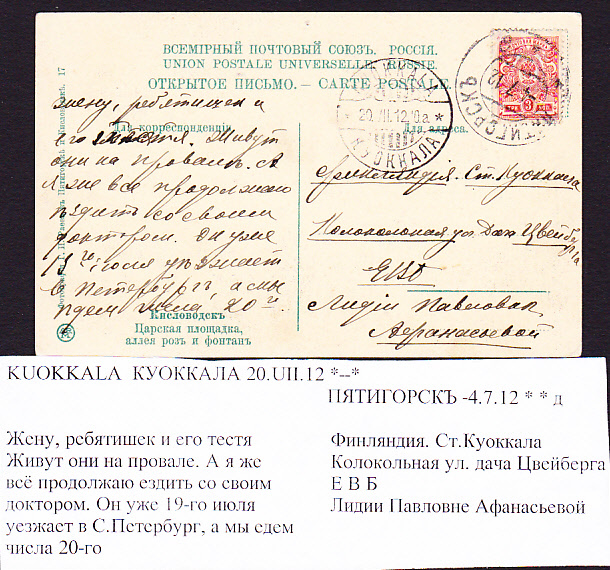 ВСЕМІРНЫЙ ПОЧТОВЫЙ СОЮЗЪ. РОССІЯ.
UNION POSTALE UNIVERSELLE. RUSSIE.
ОТКРЫТОЕ ПИСЬМО. — CARTE POSTALE.
Для корреспонденціи.
Для адреса.
жену, ребятишек и
его тестя. Живут
они на провале. А
я же всё продолжаю
ѣздить со своим
доктором. Он уже
19го июля уѣзжает
в Петербург, а мы
ѣдем числа 20го.
Кисловодскъ
Царская площадка,
аллея розъ и фонтанъ
17
KUOKKALA
20.VII.12
КУОККАЛА
ПЯТИГОРСКЪ
3
Финляндия. Ст. Куоккала
Колокольная ул. Дача Цвейберга
ЕВБ
Лидии Павловне
Афанасьевой
KUOKKALA КУОККАЛА 20.UII.12 *--*
ПЯТИГОРСКЪ -4.7.12 * * д
Жену, ребятишек и его тестя
Живут они на провале. А я же
всё продолжаю ездить со своим
доктором. Он уже 19-го июля
уезжает в С.Петербург, а мы едем
числа 20-го
Финляндия. Ст.Куоккала
Колокольная ул. дача Цвейберга
Е В Б
Лидии Павловне Афанасьевой